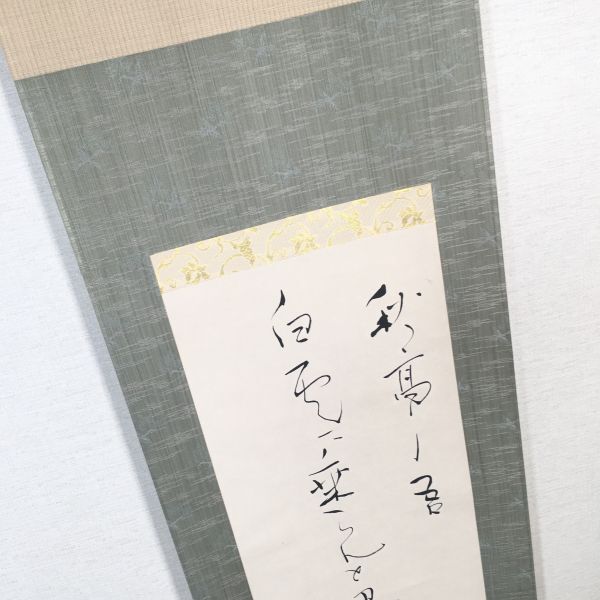 秋高し吾
白雲に乗らんと思